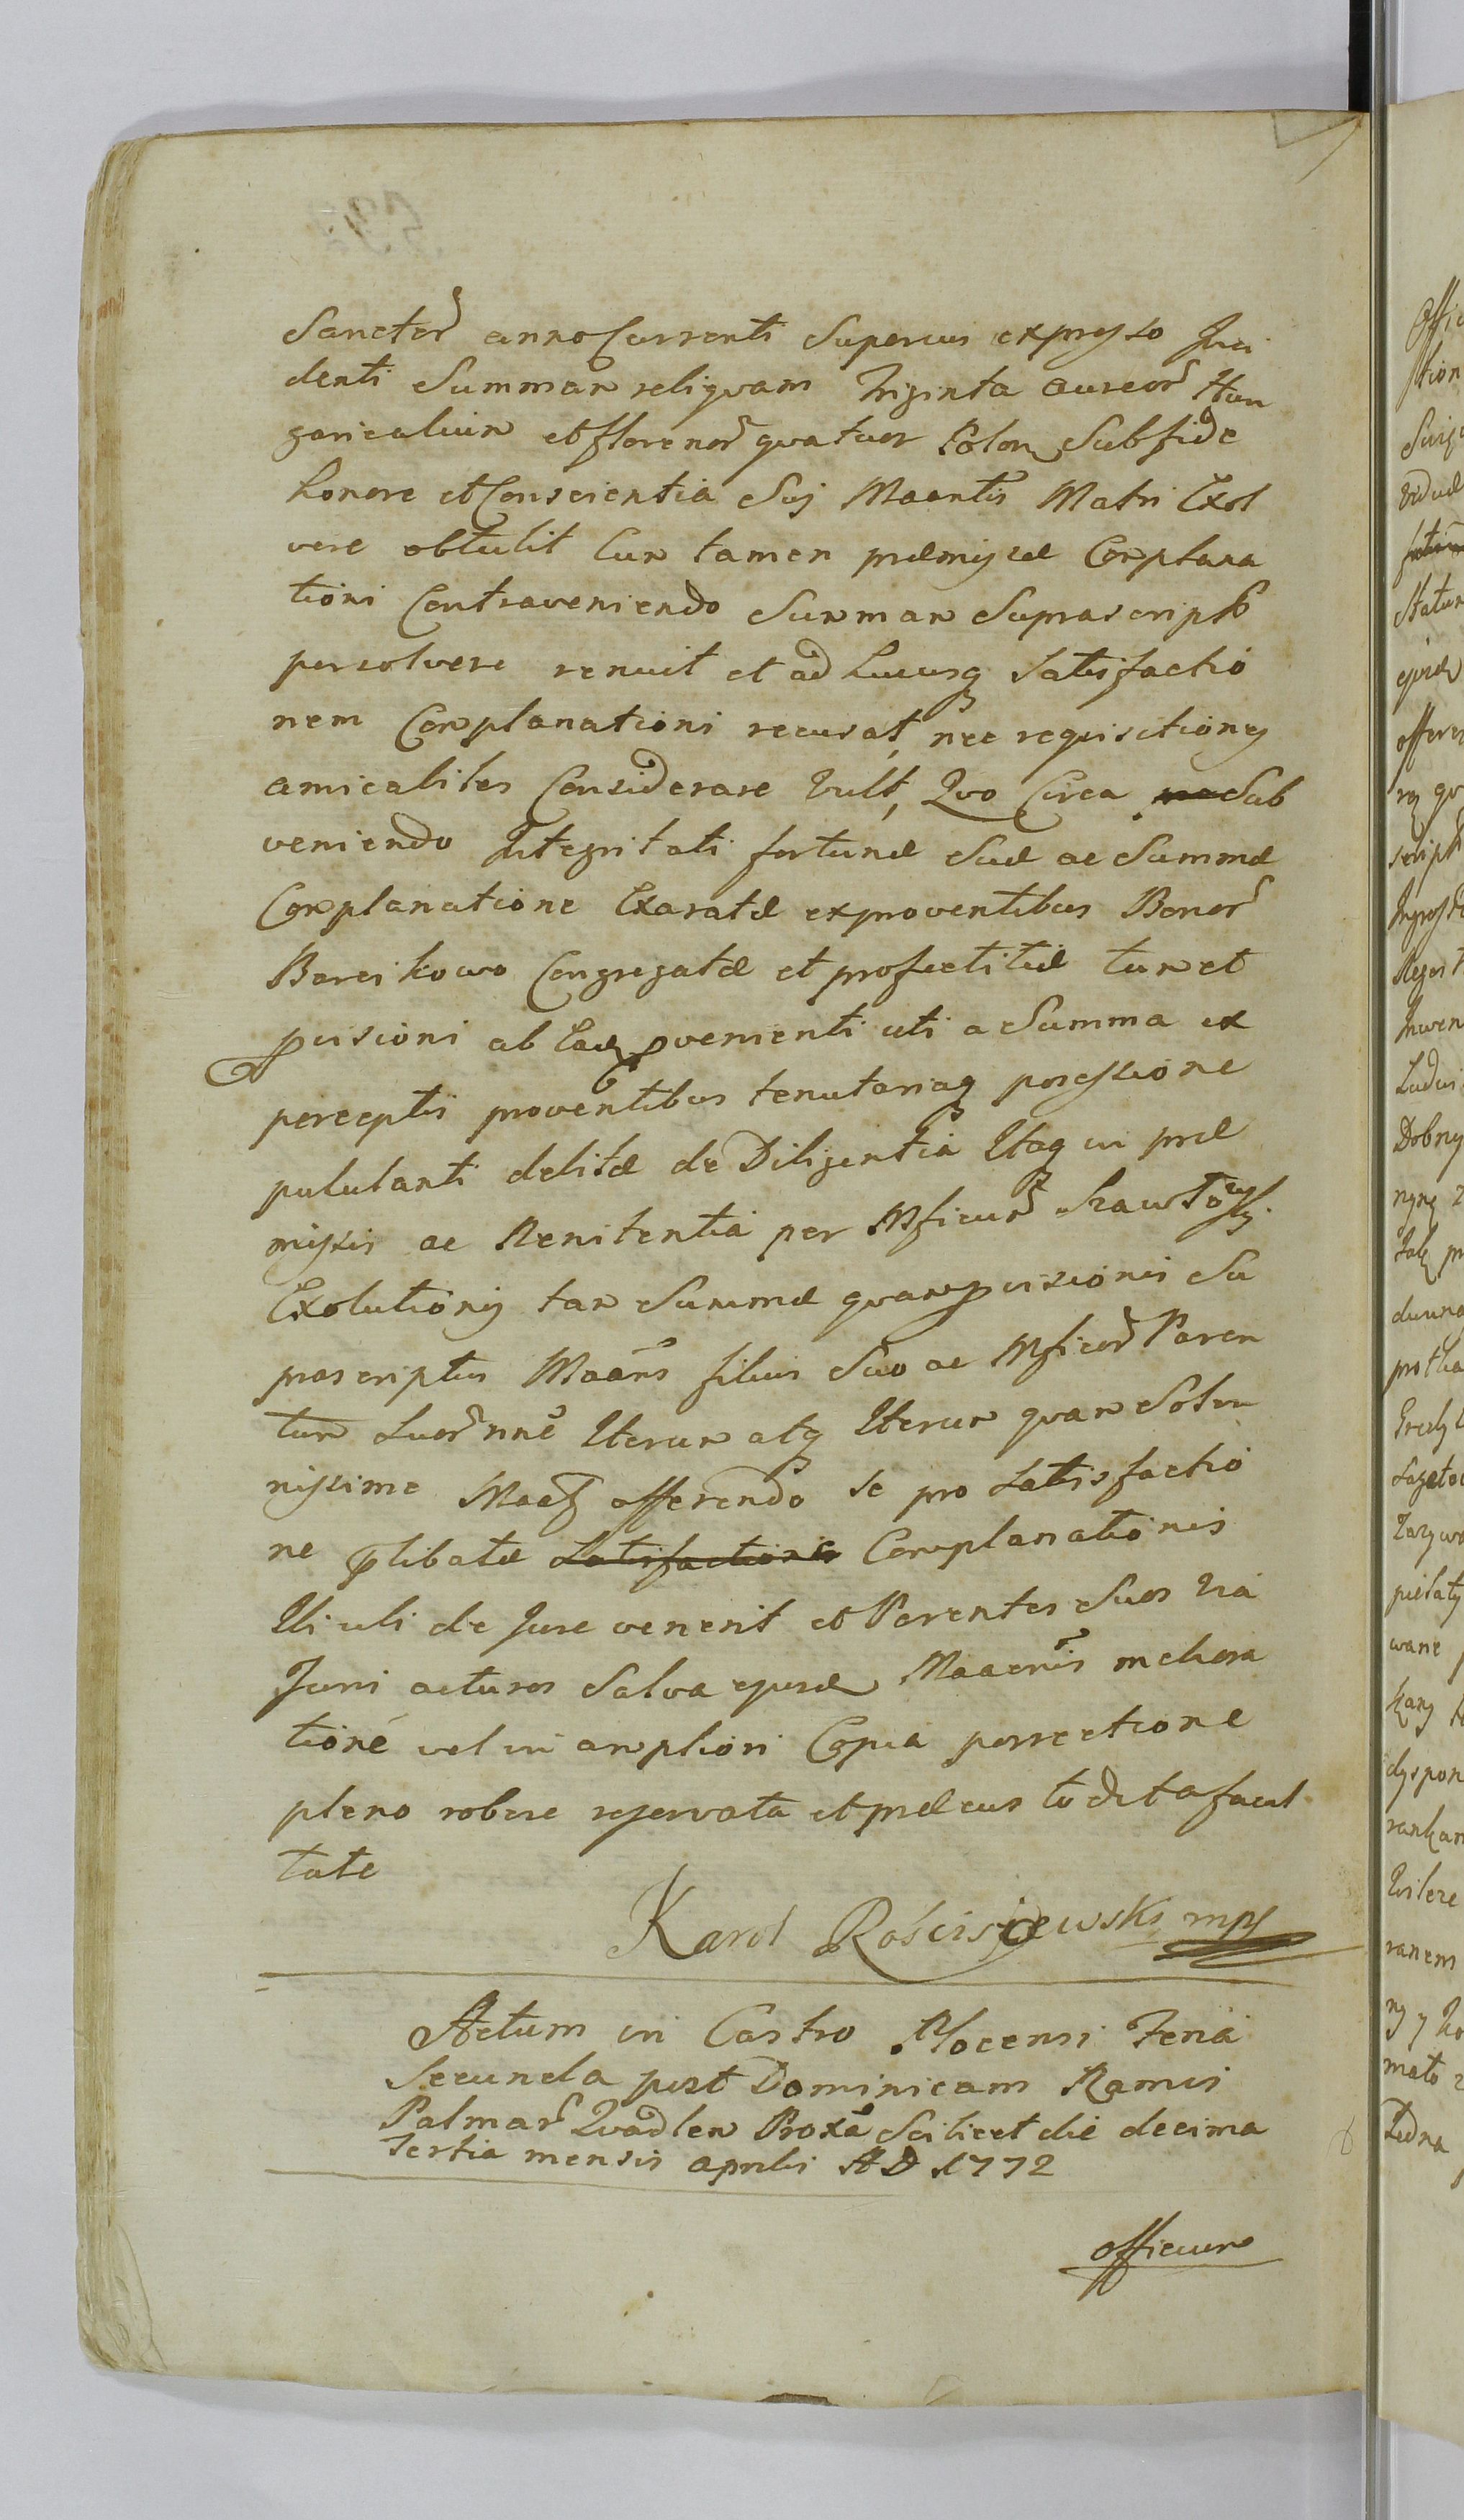 Sanctor anno Currenti Superius expresso Inci
denti Summam reliquam Triginta aureor Hun
garicalium et florenor quatuor Polon Sub fide
honore et Conscientia Sui Maantis Matri Exol
vere obtulit cum tamen præmissæ Complana
tioni Contraveniendo Summam Suprascripta
persolvere renuit et ad hucusq Satisfactio
nem Complanationi recusat, nec requisitiones
amicabiliter Considerare Vult, Quo Circa Sub
veniendo Integritati fortunæ Suæ ac Summæ
Complanatione Exaratæ ex proventibus Bonor
Barcikowo Congregatæ et profectitiæ tum et
pvisioni ab Eadem pvenienti uti a Summa ex
perceptis proventibus tenutariaq possessione
pululanti debitæ de Diligentia Itaq in præ
missis ac Renitentia per Mficum
Exolutionis tam Summæ quam pvisionis Su
prascriptus Maans filius Suo ac Mficor Paren
tum Suor nne Iterum atq Iterum quam Solen
nissime Maat offerendo se pro Satisfactio
ne plibatæ Satisfactionis Complanationis
Ibi ubi de Jure venerit et Parentes Suos Via
Juris acturos Salva ejusd Maaenis meliora
tione vel in ampliori Copia porrectione
pleno robore reservata et præcustodita facul
tate
Karol Rościszewski mpp
Actum in Castro Plocensi Feria
Secunda post Dominicam Ramis
Palmar Quadlem Proxa Scilicet die decima
tertia mensis aprilis AD 1772
officium